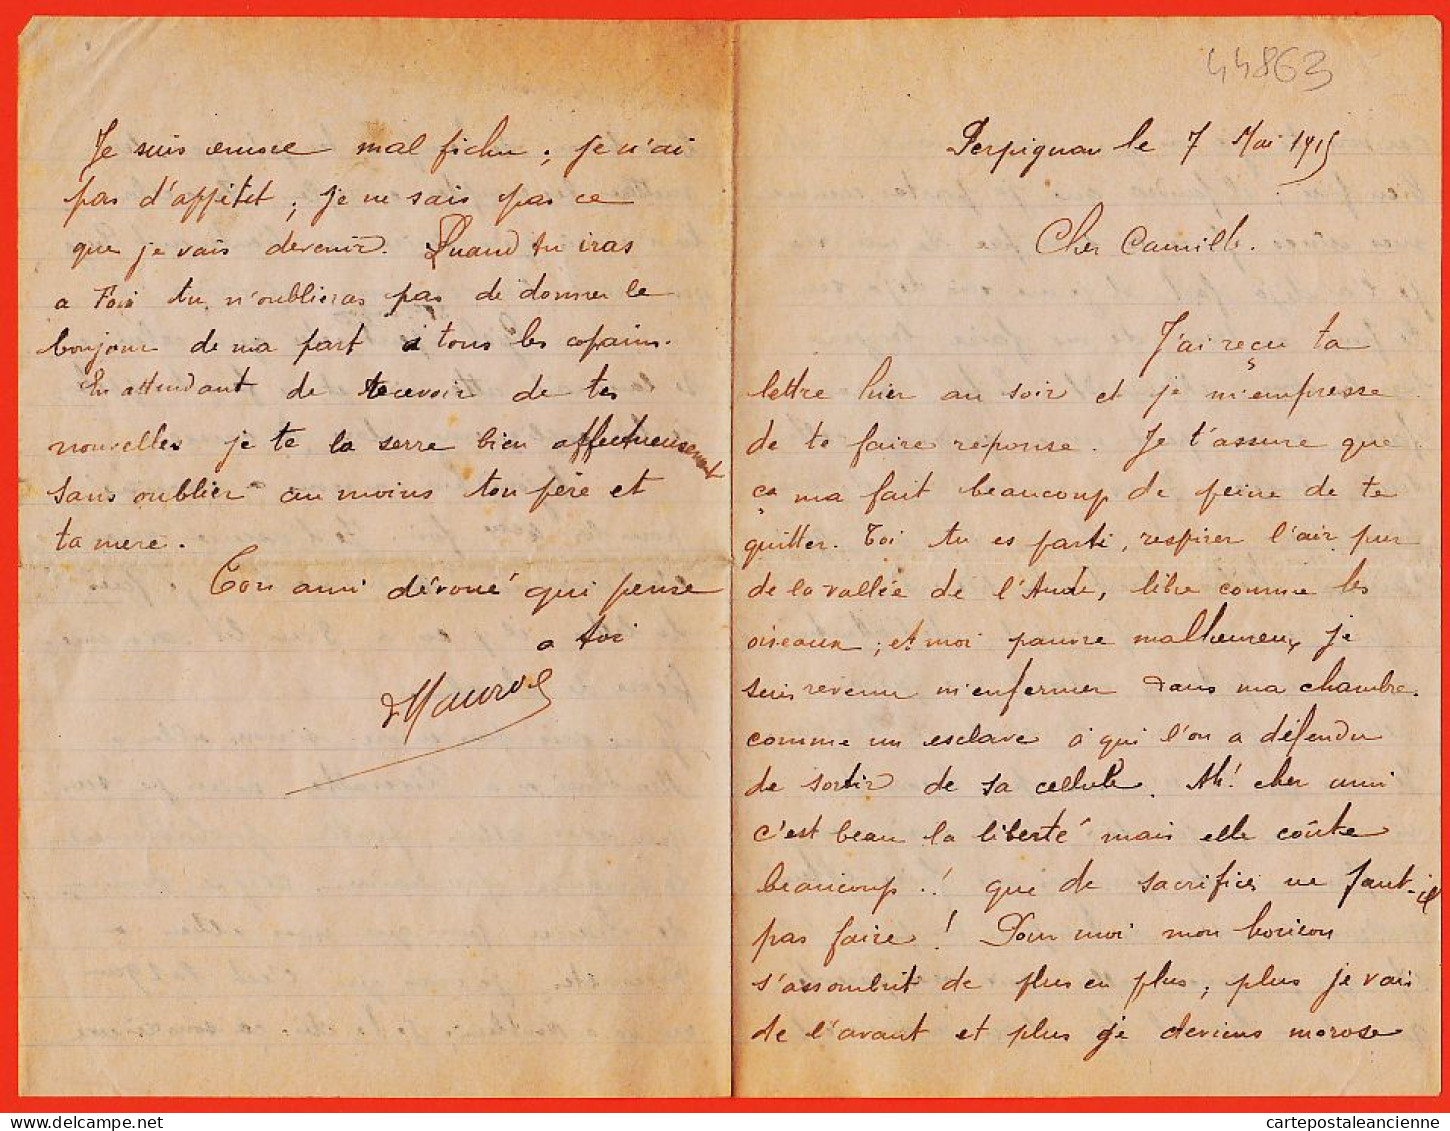 44863
Perpignan le 7 Mai 1915
Cher Camille.
J'ai reçu ta
lettre hier au soir et je m'empresse
de te faire réponse. Je t'assure que
ça ma fait beaucoup de peine de te
quitter. Toi tu es parti, respirer l'air pur
de la vallée de l'Aude, libre comme les
oiseaux ; et moi pauvre malheureux je
suis revenu m'enfermer dans ma chambre.
comme un esclave à qui l'on a défendu
de sortir de sa cellule. Ah! cher ami
c'est beau la liberté mais elle coûte
beaucoup.! que de sacrifices ne faut-il
pas faire ! Pour moi mon horizon
s'assombrit de plus en plus, plus je vais
de l'avant et plus je deviens morose
Je suis encore mal fichu ; je n'ai
pas d'appétit ; je ne sais pas ce
que je vais devenir. Quand tu iras
a Foix tu n'oublieras pas de donner le
bonjour de ma part à tous les copains.
En attendant de recevoir de tes
nouvelles je te la serre bien affectueusement
sans oublier au moins ton père et
ta mère.
Ton ami dévoué qui pense
a toi
cartepostaleancienne.com